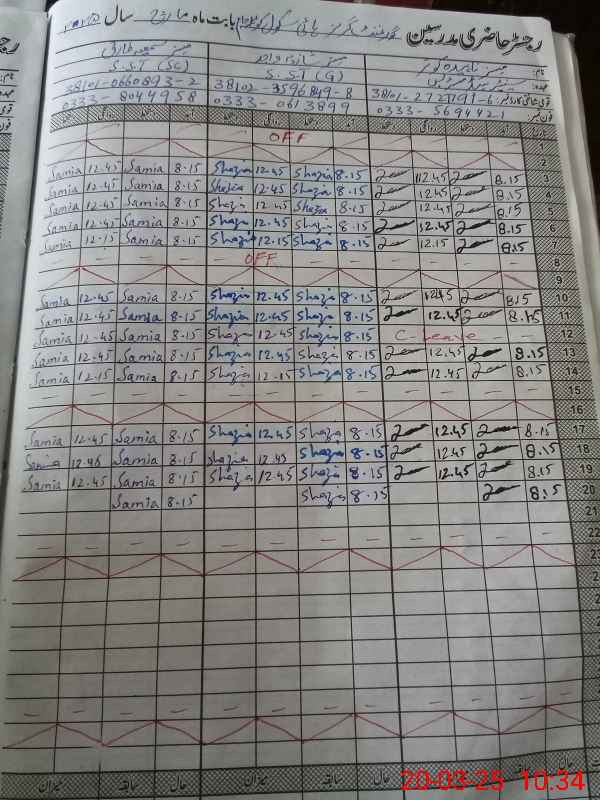 رجسٹر حاضری مدرسین گورنمنٹ گرلز ہائی سکول بابت ماہ مارچ سال
نام:
عہدہ:
S.S.T (G) S.S.T (SC)
قومی شناختی کارڈ نمبر: 38101-2727191-6 38102-3596849-8 38101-0660893-2
فون نمبر: 0333-5694421 0333-0613899 0333-8044958
تاریخ آمد دستخط روانگی دستخط آمد دستخط روانگی دستخط آمد دستخط روانگی دستخط
1 OFF
2
3 8.15 12.45 8.15 Shazia 12.45 Shazia 8.15 Samia 12.45 Samia
4 8.15 12.45 8.15 Shazia 12.45 Shazia 8.15 Samia 12.45 Samia
5 8.15 12.45 8.15 Shazia 12.45 Shazia 8.15 Samia 12.45 Samia
6 8.15 12.45 8.15 Shazia 12.45 Shazia 8.15 Samia 12.45 Samia
7 8.15 12.15 8.15 Shazia 12.15 Shazia 8.15 Samia 12.15 Samia
8 OFF
9
10 8.15 12.45 8.15 Shazia 12.45 Shazia 8.15 Samia 12.45 Samia
11 8.15 12.45 8.15 Shazia 12.45 Shazia 8.15 Samia 12.45 Samia
12 C-Leave 8.15 Shazia 12.45 Shazia 8.15 Samia 12.45 Samia
13 8.15 12.45 8.15 Shazia 12.45 Shazia 8.15 Samia 12.45 Samia
14 8.15 12.45 8.15 Shazia 12.15 Shazia 8.15 Samia 12.15 Samia
15
16
17 8.15 12.45 8.15 Shazia 12.45 Shazia 8.15 Samia 12.45 Samia
18 8.15 12.45 8.15 Shazia 12.45 Shazia 8.15 Samia 12.45 Samia
19 8.15 12.45 8.15 Shazia 12.45 Shazia 8.15 Samia 12.45 Samia
20 8.15 8.15 Shazia 8.15 Samia
21
22
حال سابقہ میزان حال سابقہ میزان حال سابقہ میزان
20-03-25 10:34